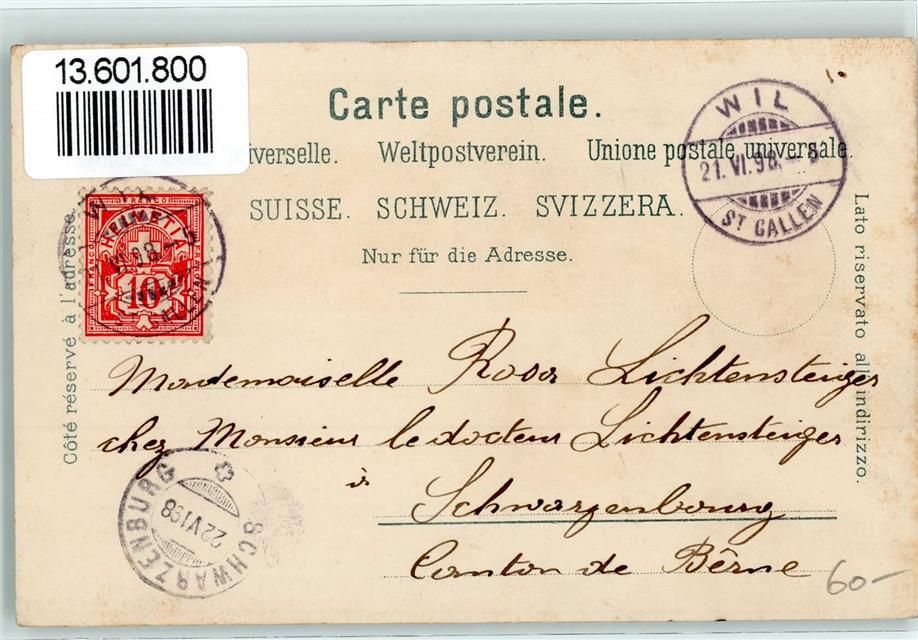 13.601.800
Carte postale.
iverselle. Weltpostverein. Unione postale universale.
SUISSE. SCHWEIZ. SVIZZERA.
Nur für die Adresse.
WIL
21.VI.98.
ST GALLEN
FRANCO
HELVETIA
10
Côté réservé à l'adresse.
Lato riservato all'indirizzo.
Mondemoiselle Rosa Lichtensteiger
chez Monsieur le docteur Lichtensteiger
à
Schwarzenbourg
Canton de Bêrne
SCHWARZENBURG
22 VI 98
60-